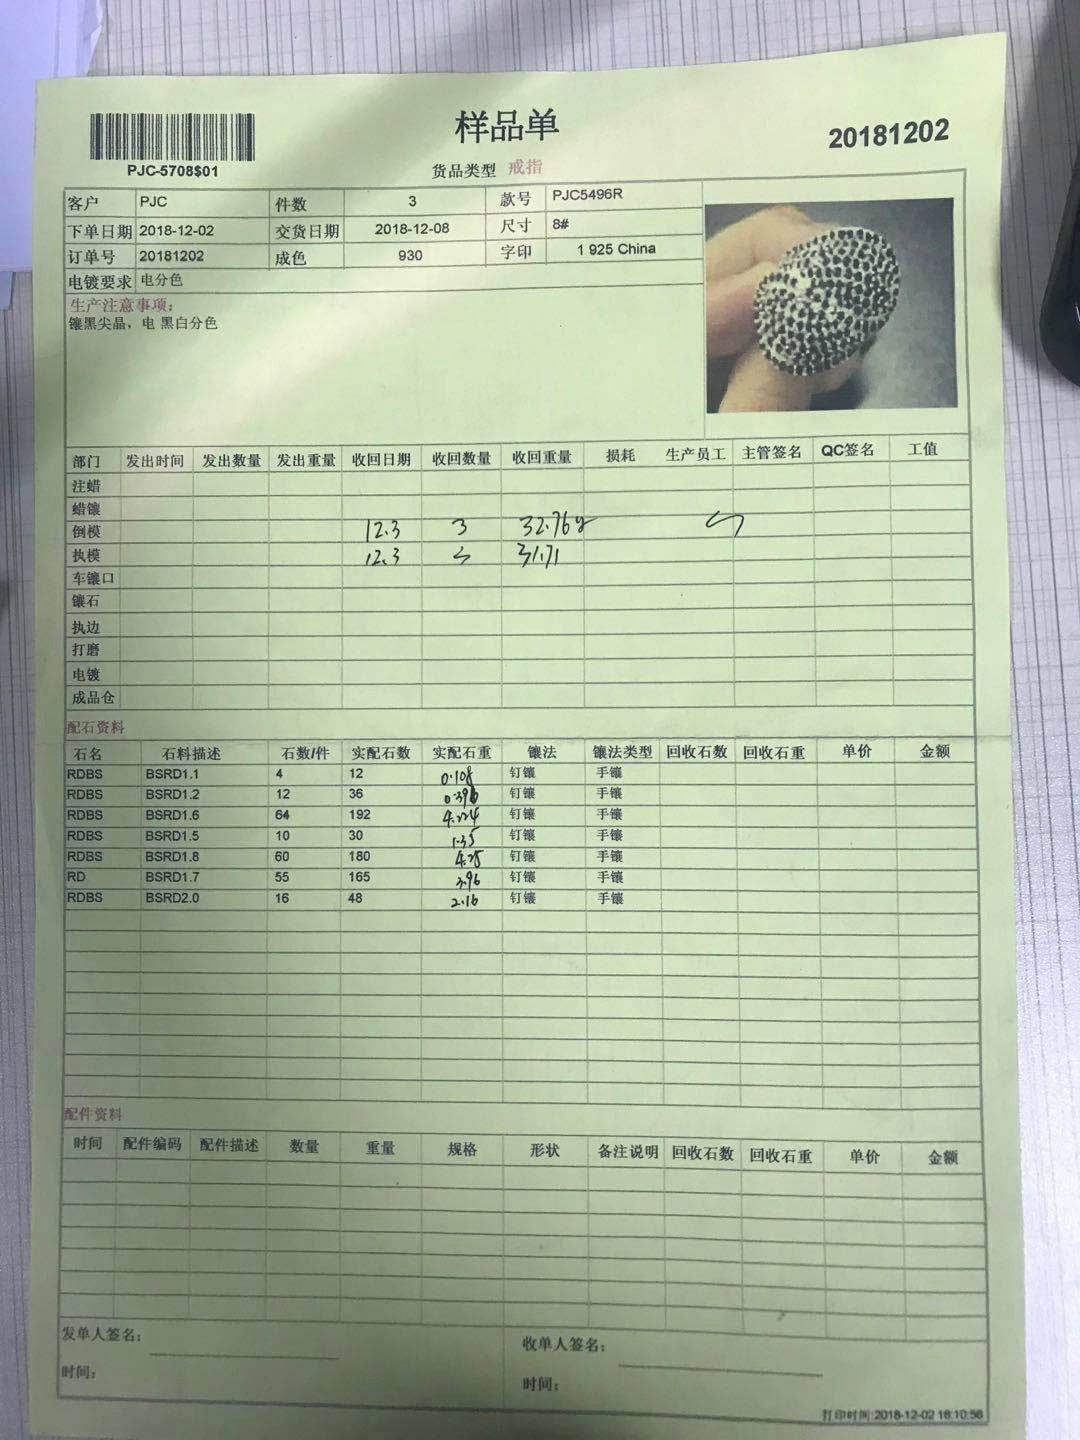 样品单
20181202
PJC-5708$01
货品类型 戒指
客户 PJC 件数 3 款号 PJC5496R
下单日期 2018-12-02 交货日期 2018-12-08 尺寸 8#
订单号 20181202 成色 930 字印 1 925 China
电镀要求 电分色
生产注意事项:
镶黑尖晶，电 黑白分色
部门 发出时间 发出数量 发出重量 收回日期 收回数量 收回重量 损耗 生产员工 主管签名 QC签名 工值
注蜡
蜡镶
倒模 12.3 3 32.76g
执模 12.3 3 31.71
车镶口
镶石
执边
打磨
电镀
成品仓
配石资料
石名 石料描述 石数/件 实配石数 实配石重 镶法 镶法类型 回收石数 回收石重 单价 金额
RDBS BSRD1.1 4 12 0.108 钉镶 手镶
RDBS BSRD1.2 12 36 0.396 钉镶 手镶
RDBS BSRD1.6 64 192 4.224 钉镶 手镶
RDBS BSRD1.5 10 30 1.35 钉镶 手镶
RDBS BSRD1.8 60 180 钉镶 手镶
RD BSRD1.7 55 165 3.96 钉镶 手镶
RDBS BSRD2.0 16 48 2.16 钉镶 手镶
配件资料
时间 配件编码 配件描述 数量 重量 规格 形状 备注说明 回收石数 回收石重 单价 金额
发单人签名: 收单人签名:
时间: 时间:
打印时间:2018-12-02 16:10:56